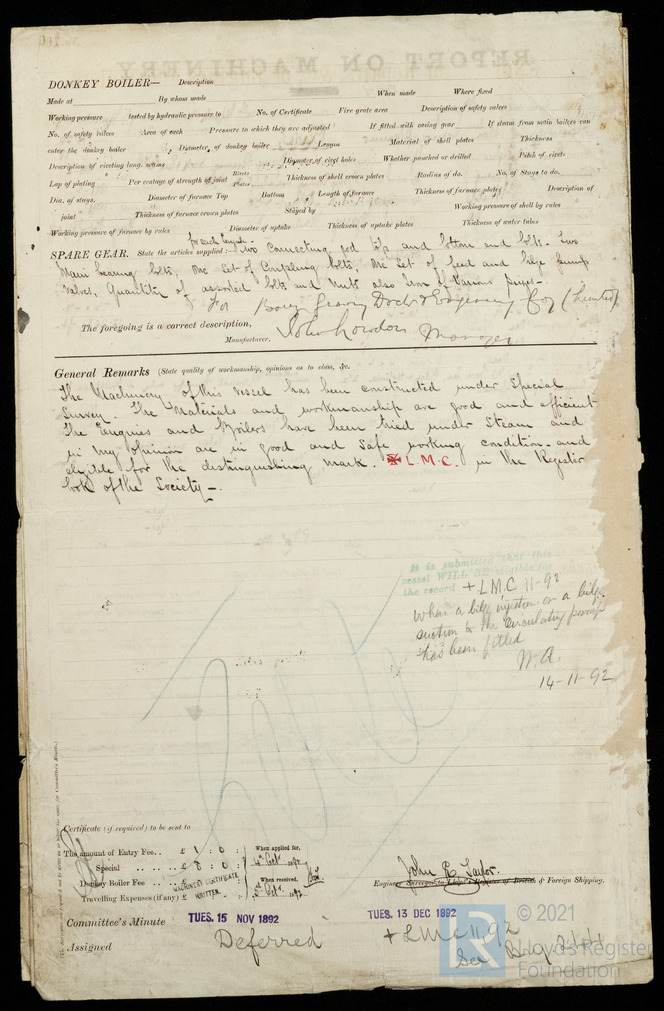 DONKEY BOILER— Description
Made at By whom made When made Where fixed
Working pressure tested by hydraulic pressure to No. of Certificate Fire grate area Description of safety valves
No. of safety valves Area of each Pressure to which they are adjusted If fitted with easing gear If steam from main boilers can
enter the donkey boiler Diameter of donkey boiler Length Material of shell plates Thickness
Description of riveting long. seams Diameter of rivet holes Whether punched or drilled Pitch of rivets
Lap of plating Per centage of strength of joint Rivets Plates Thickness of shell crown plates Radius of do. No. of Stays to do.
Dia. of stays. Diameter of furnace Top Bottom Length of furnace Thickness of furnace plates Description of
joint Thickness of furnace crown plates Stayed by Working pressure of shell by rules
Working pressure of furnace by rules Diameter of uptake Thickness of uptake plates Thickness of water tubes
SPARE GEAR. State the articles supplied:— for each Engine— Two connecting rod top and bottom end bolts. Two
Main bearing bolts, One set of Coupling bolts, One set of feed and bilge pump
valves, Quantity of assorted bolts and nuts also iron of various sizes—
For
The foregoing is a correct description,
Manufacturer. Manager
General Remarks (State quality of workmanship, opinions as to class, &c.
The Machinery of this vessel has been constructed under Special
Survey. The Materials and workmanship are good and efficient
The Engines and Boilers have been tried under Steam and
in my opinion are in good and safe working condition and
eligible for the distinguishing mark. ✠ L.M.C. in the Register
book of the Society—.
It is submitted that this
vessel WILL BE eligible for
the record. + LMC 11-92
when a bilge injection or a bilge
suction to the circulating pumps
has been fitted
W.A.
14-11-92
Certificate (if required) to be sent to
The amount of Entry Fee.. £ 1 : 0 : When applied for,
Special .. .. £ 8 : 0 : 4th Oct 1892
Donkey Boiler Fee .. .. £ When received,
Travelling Expenses (if any) £
MACHINERY CERTIFICATE
WRITTEN.
John E. Taylor.
Engineer Surveyor to Lloyd's Register of British & Foreign Shipping.
Committee's Minute TUES. 15 NOV 1892 TUES. 13 DEC 1892
Assigned Deferred + LMC 11.92
© 2021
Lloyd's Register
Foundation